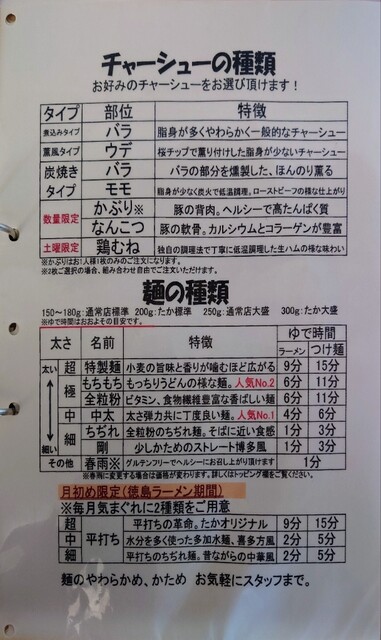 チャーシューの種類
お好みのチャーシューをお選び頂けます！
タイプ 部位 特徴
煮込みタイプ バラ 脂身が多くやわらかく一般的なチャーシュー
薫風タイプ ウデ 桜チップで薫り付けした脂身が少ないチャーシュー
炭焼き バラ バラの部分を燻製した、ほんのり薫る
タイプ モモ 脂身が少なく炭火で低温調理。ローストビーフの様な仕上がり
数量限定 かぶり※ 豚の背肉。ヘルシーで高たんぱく質
なんこつ 豚の軟骨。カルシウムとコラーゲンが豊富
土曜限定 鶏むね 独自の調理法で丁寧に低温調理した生ハムの様な味わい
※かぶりはお1人様1枚のみのご注文になります。
※2枚ご選択の場合、組み合わせ自由でご注文いただけます。
麺の種類
150～180g:通常店標準 200g:たか標準 250g:通常店大盛 300g:たか大盛
※ゆで時間はおおよその目安です。
太さ 名前 特徴 ゆで時間
ラーメン つけ麺
太い 超 特製麺 小麦の旨味と香りが噛むほど広がる 9分 15分
極 もちもち もっちりうどんの様な麺。人気No.2 6分 11分
全粒粉 ビタミン、食物繊維豊富な香ばしい麺 6分 11分
中 中太 太さ弾力共に丁度良い麺。人気No.1 4分 6分
細 ちぢれ 全粒粉のちぢれ麺。そばに近い食感 1分 3分
細い 剛 少しかためのストレート博多風 1分 3分
その他 春雨※ グルテンフリーでヘルシーにお召し上がり頂けます 1分
※春雨に変更する場合は価格が変わります。詳しくはトッピング欄をご覧ください。
月初め限定(徳島ラーメン期間)
※毎月気まぐれに2種類をご用意
超 平打ち 平打ちの革命。たかオリジナル 9分 15分
中 水分を多く使った多加水麺、喜多方風 2分 5分
細 平打ちのちぢれ麺。昔ながらの中華風 2分 5分
麺のやわらかめ、かため お気軽にスタッフまで。